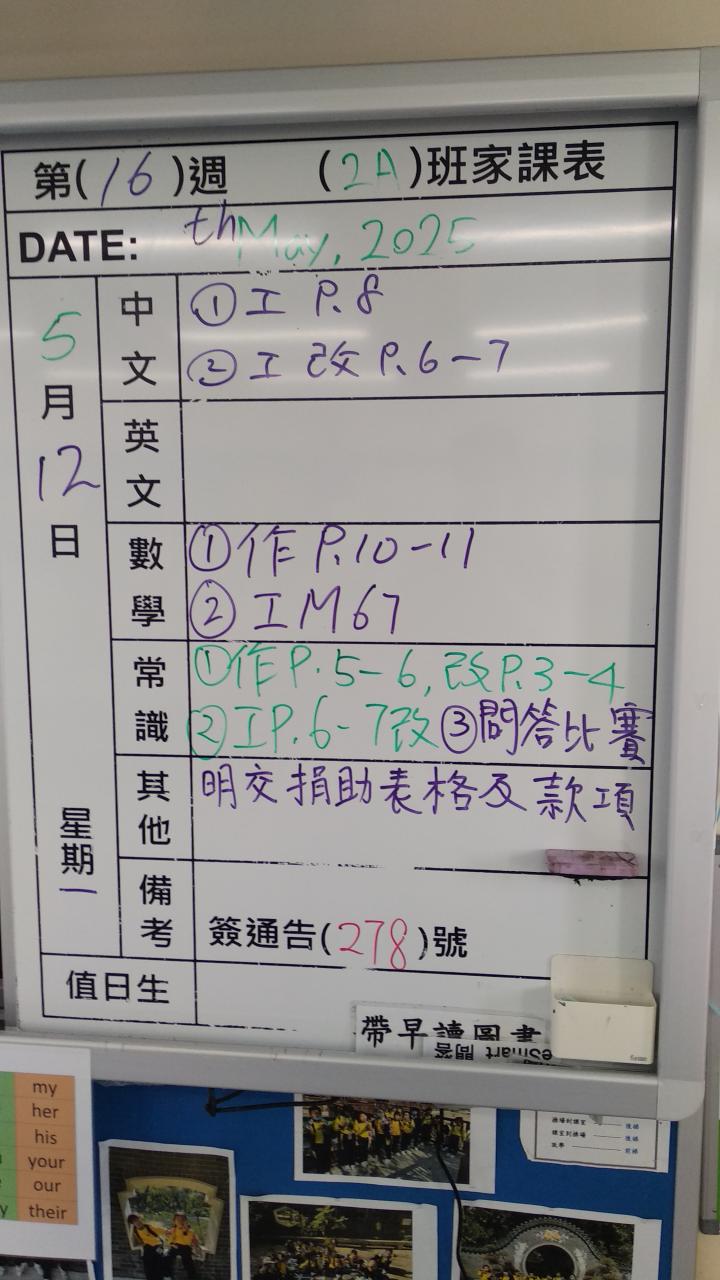 第(16)週 (2A)班家課表
DATE: th May, 2025
5月12日 星期一
中文 ①工 P.8
②工 改 P.6-7
英文
數學 ①作 P.10-11
②工M67
常識 ①作P.5-6,改P.3-4
②工P.6-7改 ③問答比賽
其他 明交捐助表格及款項
備考 簽通告(278)號
值日生
帶早讀圖書
eSmart 問答
my
her
his
your
our
their